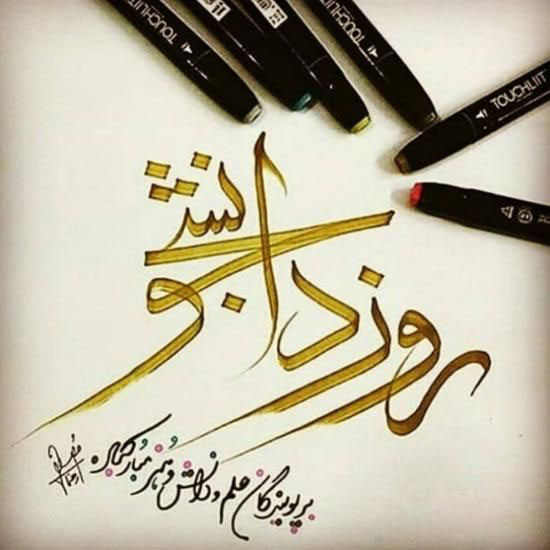 TOUCHLIIT
TOUCHLIIT
TOUCHLIIT
TOUCHLIIT
روز دانشجو
بر پویندگان علم و دانش و هنر مبارکباد